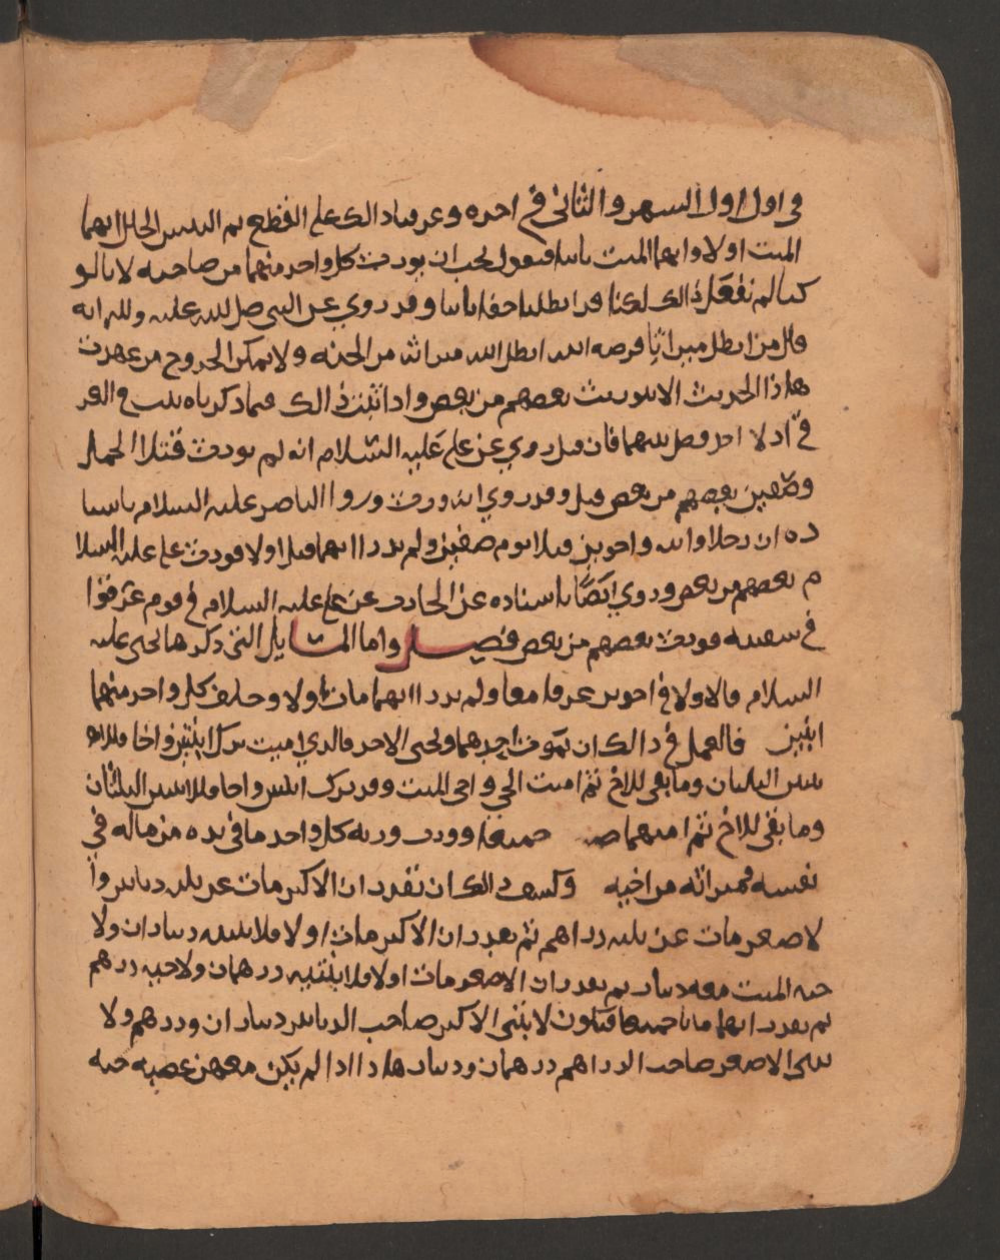 في اول اول الشهر والثاني في اخره وعرفنا ذالك على القطع ثم التبس الحال ايهما
الميت اولا وايهما الميت ثانيا فنقول يجب ان يورث كل واحد منهما من صاحبه لانا لو
كنا لم نفعل ذالك لكنا قد ابطلنا حقا ثابتا وقد روي عن النبي صلى الله عليه واله انه
قال من ابطل ميراثا فرضه الله ابطل الله ميراثه من الجنه ولا يمكن الخروج من عهدت
هاذا الحديث الا بتوريث بعضهم من بعض واذا ثبت ذالك فيما ذكرناه ثبت في الغر
في اذ لا احد فصل بينهما فان قيل روي عن علي عليه السلام انه لم يورث قتلا الجمل
وصفين بعضهم من بعض قيل وقد روي انه ورث وروا الناصر عليه السلام باسنا
ده ان رجلا وابنه واخوين قتلا يوم صفين ولم يدر ايهما قتل اولا فورث علي عليه السلا
م بعضهم من بعض وروي ايضا باسناده عن الحارث عن علي عليه السلام في قوم غرقوا
في سفينه فورث بعضهم من بعض فصل واما المسايل التي ذكرها يحيى عليه
السلام فالاولا في اخوين غرقا معا ولم يدر ايهما مات اولا وخلف كل واحد منهما
ابنتين فالعمل في ذالك ان تموت احدهما وتحيى الاخر فالذي اميت ترك ابنتين واخا فللا
بنتين الثلثان وما بقي للاخ ثم امت الحي واحي الميت وقد ترك ابنتين واخا فللابنتين الثلثان
وما بقي للاخ ثم امتهما جميعا وورث ورثه كل واحد ما في يده من ماله في
نفسه وميراثه من اخيه وكشف ذالك ان تقدر ان الاكبر مات عن ثلثه دنانير وا
لاصغر مات عن ثلثه دراهم ثم تقدر ان الاكبر مات اولا فلابنتيه ديناران ولا
خيه الميت معه دينار ثم تقدر ان الاصغر مات اولا فلابنتيه درهمان ولاخيه درهم
ثم تقدر انهما ماتا جميعا فيكون لابنتي الاكبر صاحب الدنانير ديناران ودرهم ولا
بنتي الاصغر صاحب الدراهم درهمان ودينار هاذا اذا لم يكن معهن عصبه حيه